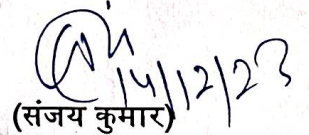 14/12/23
(संजय कुमार)